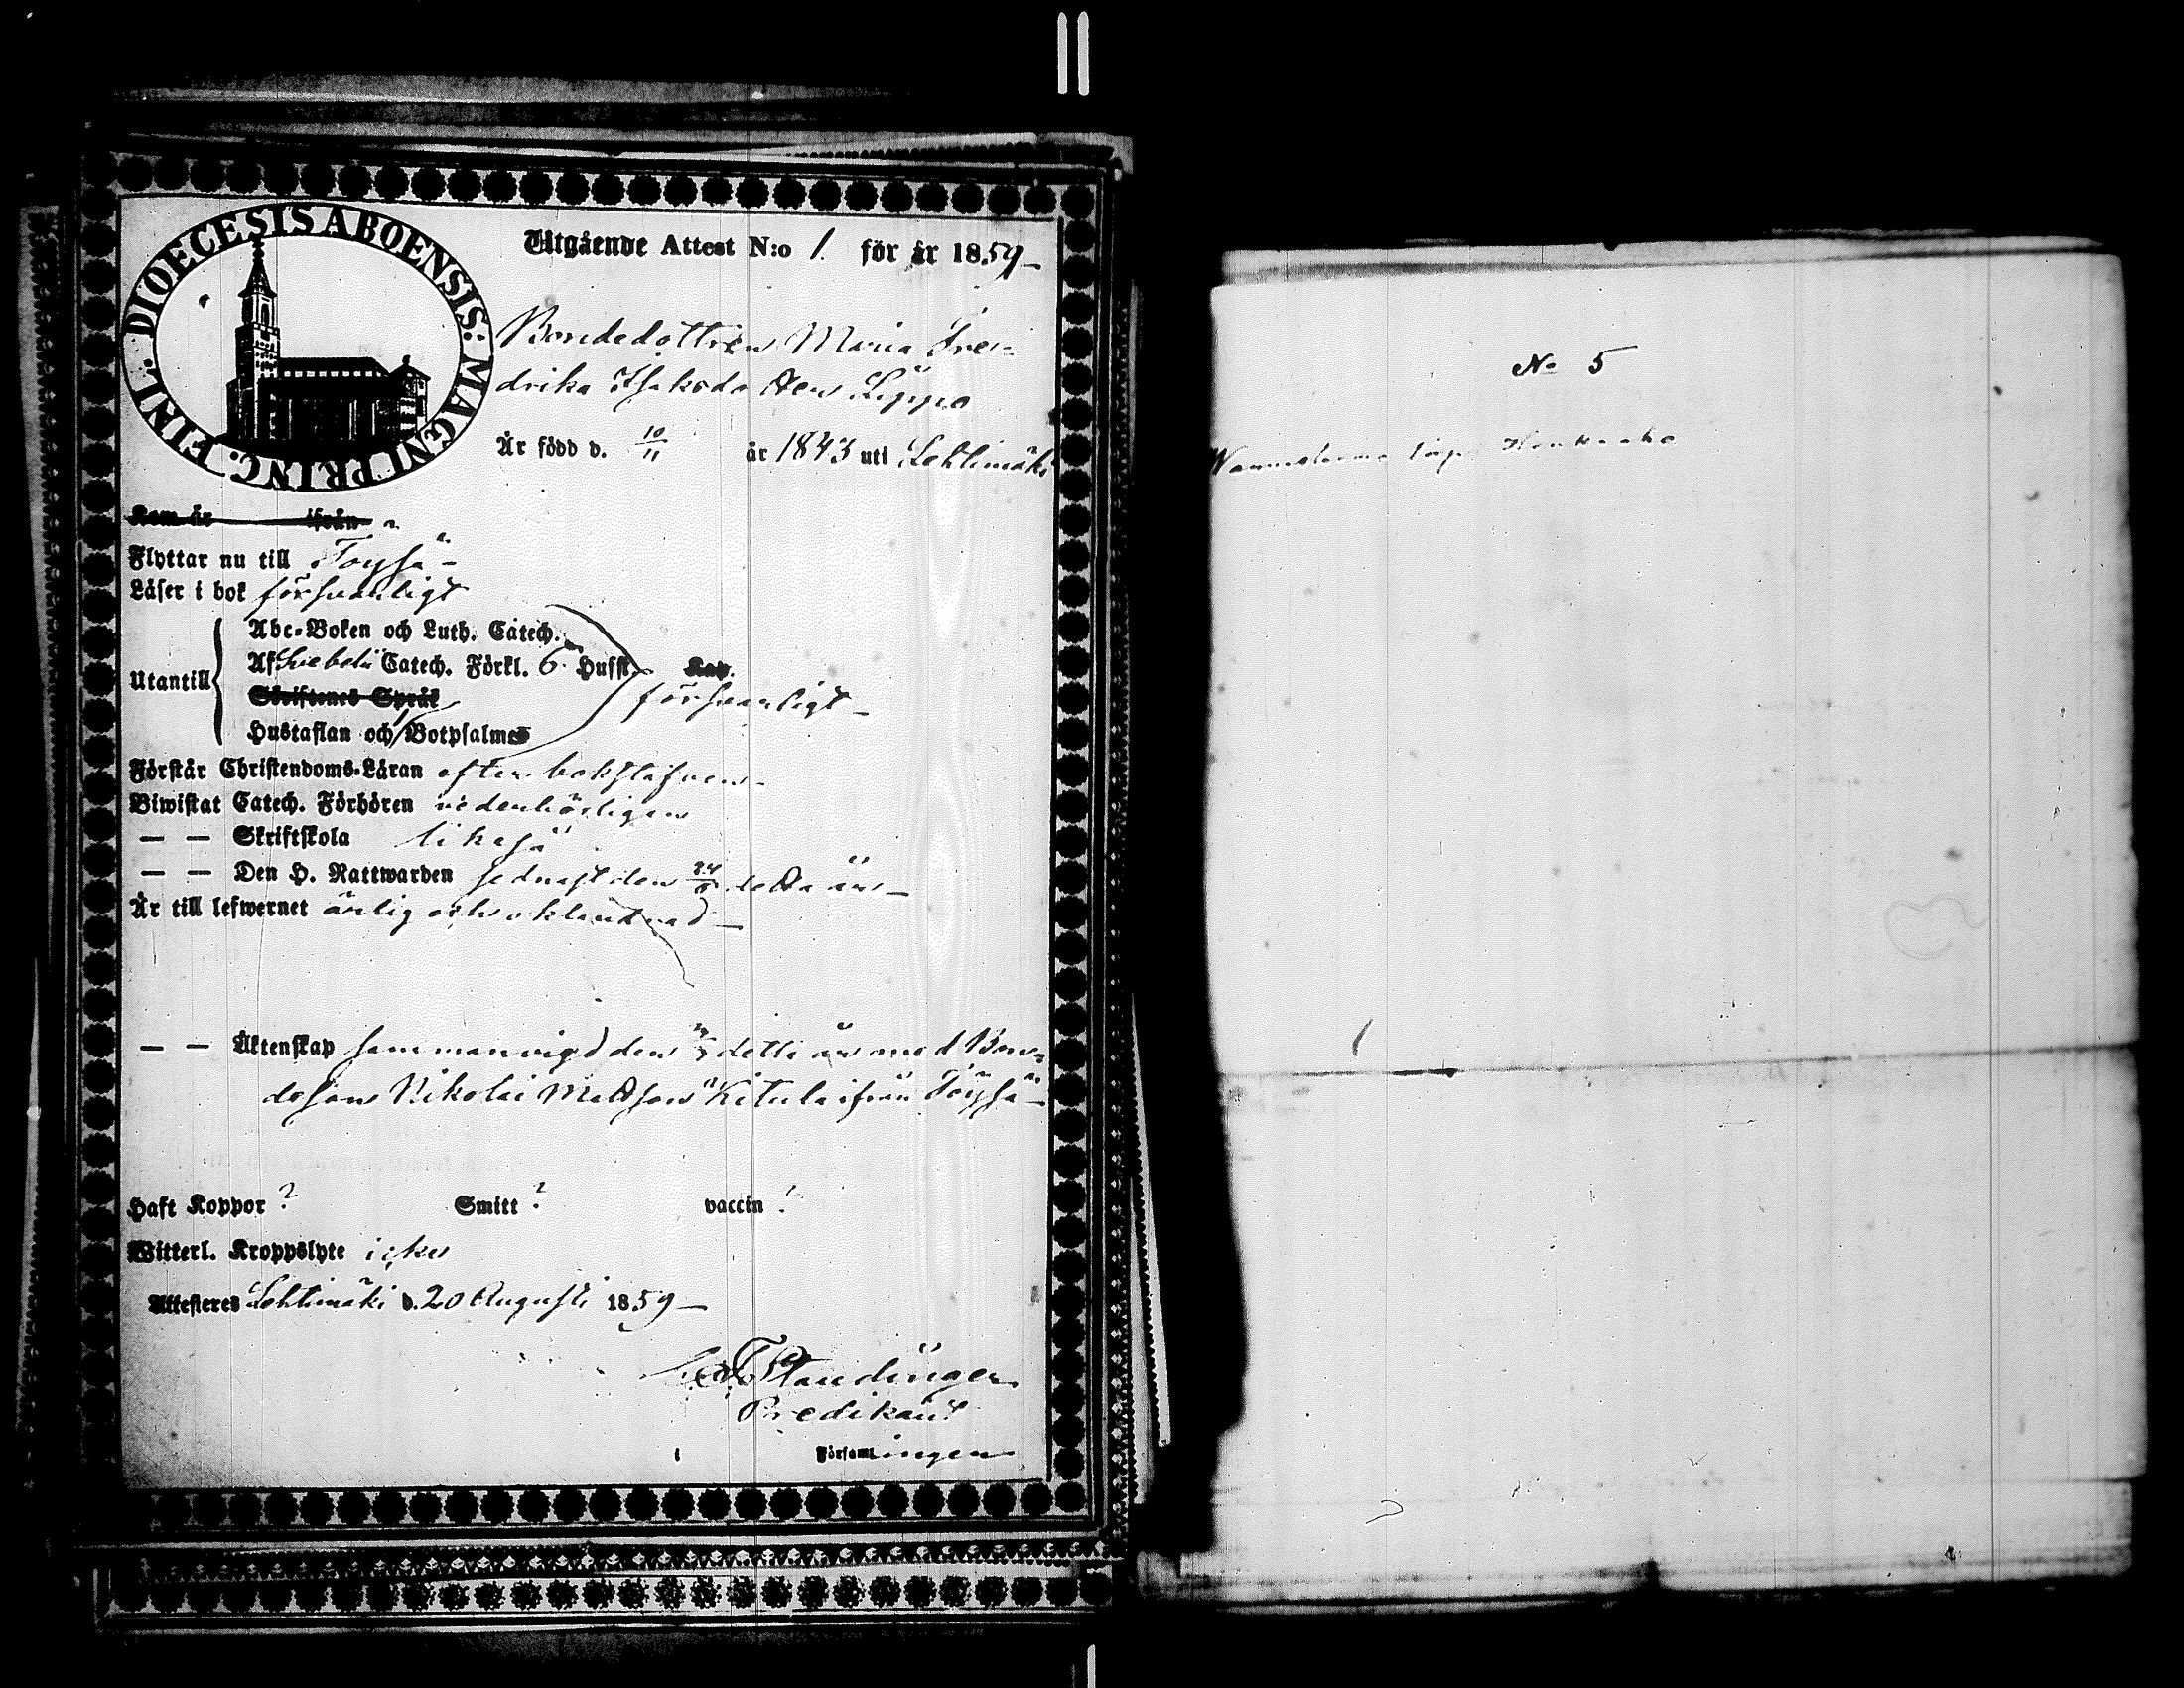 DIOECESIS ABOENSIS: MAGNI PRINC. FINL.
Utgående Attest N:o 1. för år 1859
Bondedottren Maria Fre-
drika Isaksdotter Lippo
Är född d. 10/11 år 1843 uti Lehtimäki
Kom år ifrån
Flyttar nu till Töysä
Läser i bok försvarligt
Utantill
Abc-Boken och Luth. Catech.
Af Svebelii Catech. Förkl. 6 Hufst. Kap.
Skriftenes Språk försvarligt
Hustaflan och Botpsalmen
Förstår Christendoms-Läran efter bokstafven
Biwistat Catech. Förhören vederbörligen
— — Skriftskola likaså
— — Den H. Nattwarden sednast den detta år
Är till lefwernet ärlig och oklandrad
— — Äktenskap sammanvigd den detta år med Bon-
desonen Nikolai Mattsson Kitula ifrån Töysä
Haft Koppor ? Smitt ? vaccin !
Witterl. Kroppslyte icke
Attesteres Lehtimäki d. 20 Augusti 1859
Standinger
Predikant
i Församlingen
No 5